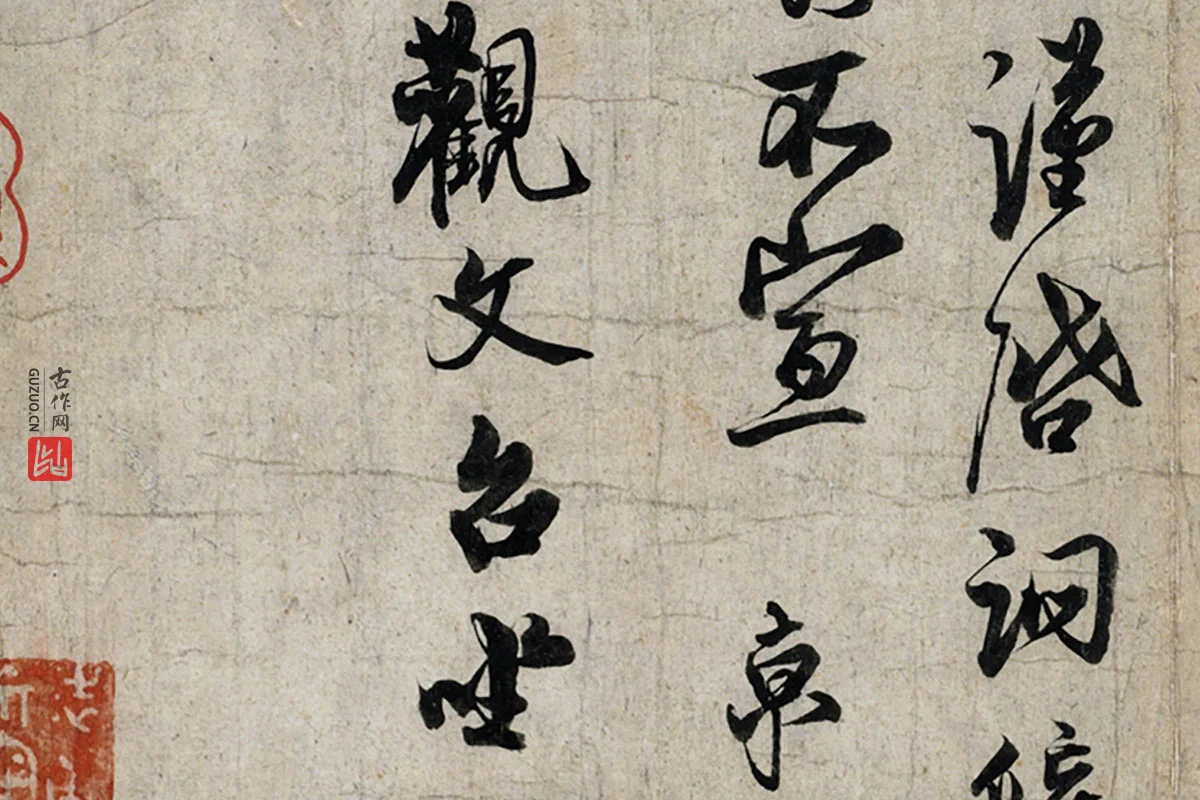 謹啓詗
不宣 京
觀文台坐
古作网
GUZUO.CN